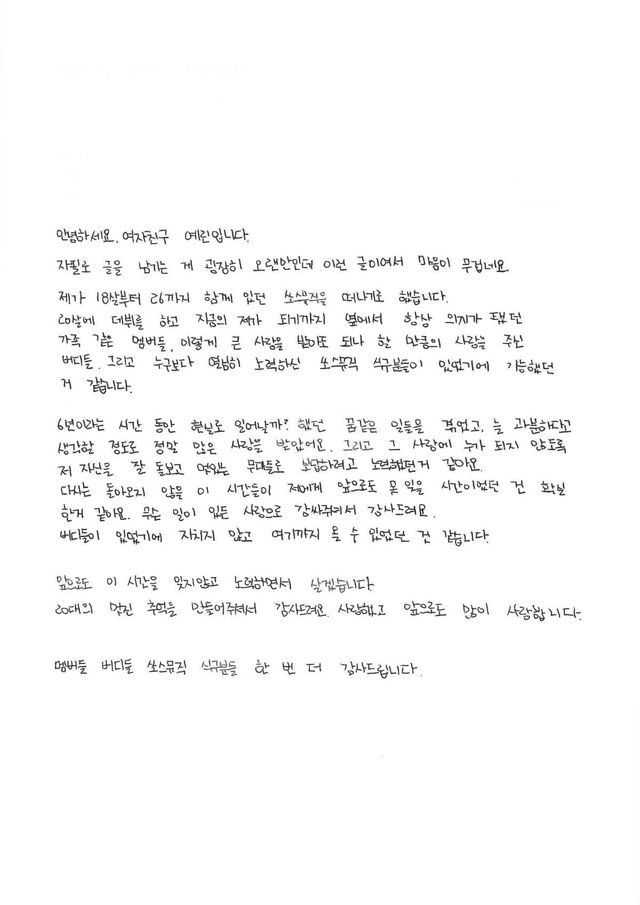 안녕하세요. 여자친구 예린입니다.
자필로 글을 남기는 게 굉장히 오랜만인데 이런 글이여서 마음이 무겁네요.
제가 18살부터 26까지 함께 있던 쏘스뮤직을 떠나기로 했습니다.
20살에 데뷔를 하고 지금의 제가 되기까지 옆에서 항상 의지가 돼줬던
가족 같은 멤버들, 이렇게 큰 사랑을 받아도 되나 한 만큼의 사랑을 주신
버디들. 그리고 누구보다 열심히 노력하신 쏘스뮤직 식구분들이 있었기에 가능했던
거 같습니다.
6년이라는 시간 동안 현실로 일어날까? 했던 꿈같은 일들을 겪었고, 늘 과분하다고
생각할 정도로 정말 많은 사랑을 받았어요. 그리고 그 사랑에 누가 되지 않도록
저 자신을 잘 돌보고 멋있는 무대들로 보답하려고 노력했던거 같아요.
다시는 돌아오지 않을 이 시간들이 저에게 앞으로도 못 잊을 시간이었던 건 확실
한거 같아요. 무슨 일이 있든 사랑으로 감싸줘서 감사드려요.
버디들이 있었기에 지치지 않고 여기까지 올 수 있었던 것 같습니다.
앞으로도 이 시간을 잊지않고 노력하면서 살겠습니다.
20대의 멋진 추억을 만들어주셔서 감사드려요. 사랑했고 앞으로도 많이 사랑합니다.
멤버들 버디들 쏘스뮤직 식구분들 한 번 더 감사드립니다.